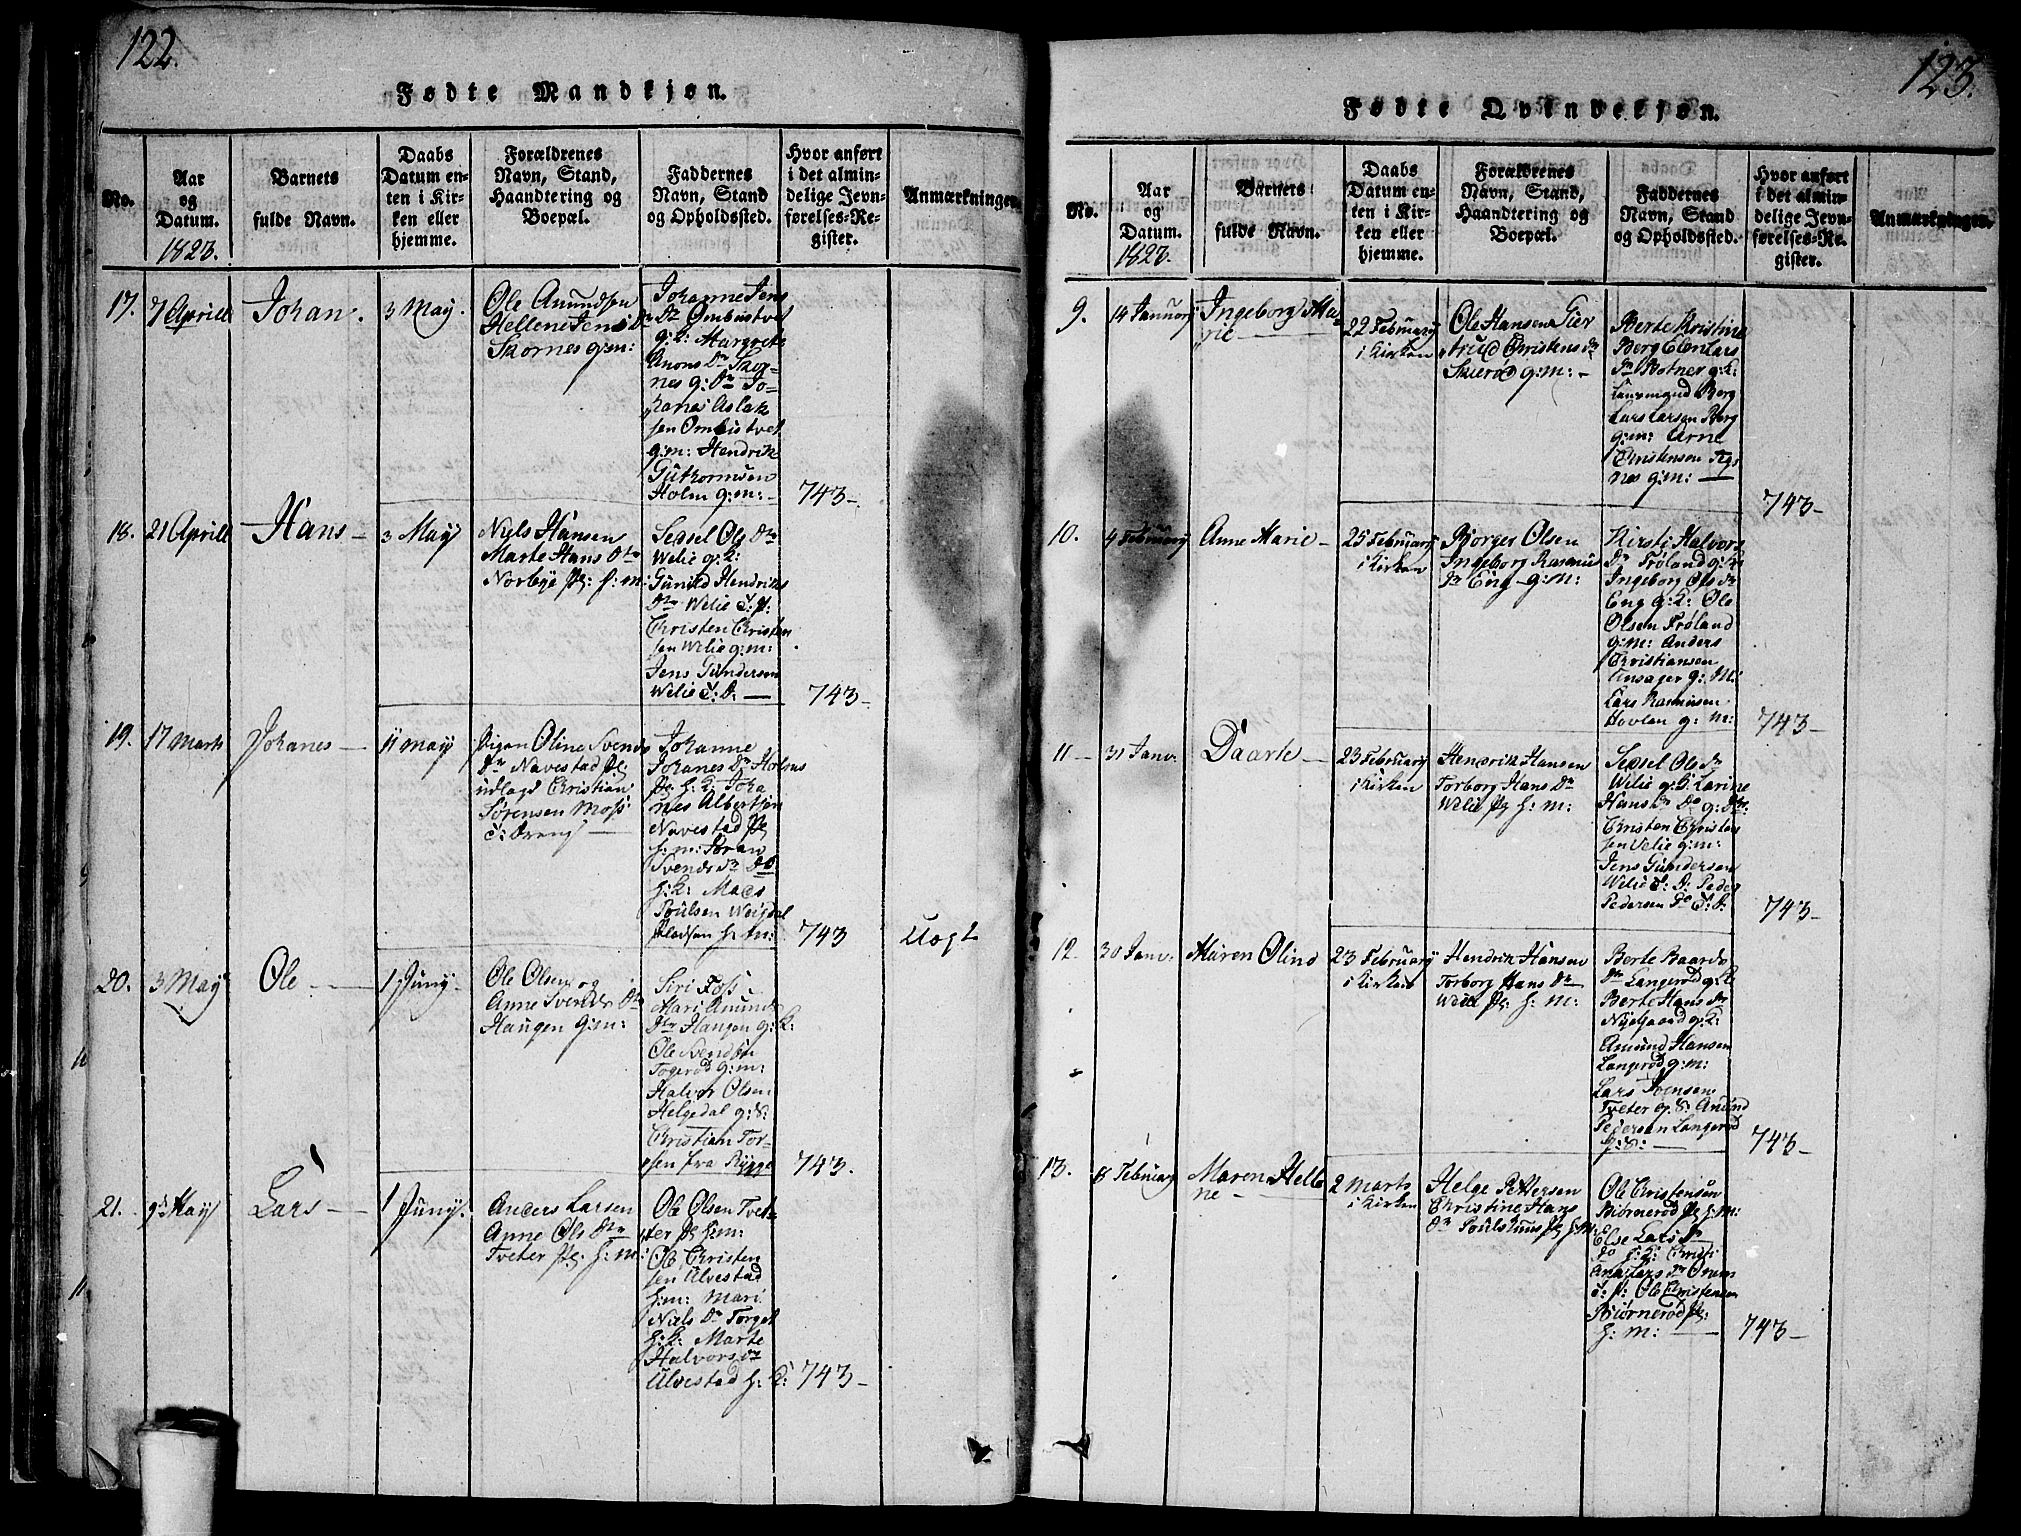 122.
Fødte Mandkjøn.
No.
Aar
og
Datum.
1823.
Barnets
fulde Navn.
Daabs
Datum en-
ten i Kir-
ken eller
hjemme.
Forældrenes
Navn, Stand,
Haandtering og
Boepæl.
Faddernes
Navn, Stand
og Opholdssted.
Hvor anført
i det almin-
delige Jevn-
førelses-Re-
gister.
Anmærkninger.
17.
7 Aprill
Johan.
3 May.
Ole Amundsen
Hellene Jens Dr
Skornes g:m:
Johanne Jens
Dr Ombustvet
g:k: Margrete
Anons Dr Skor-
nes g: Dr Jo-
hanes Aslak
sen Ombustvet
g:m: Hendrik
Guthormsen
Holm g:m:
743-
18.
21 Aprill
Hans
3 May
Niels Hansen
Marte Hans Dtr
Norbye pl: h:m:
Sedsel Ols Dtr
Welie g:k:
Gunild Hendriks
Dtr Welie t:p:
Christen Christen
sen Welie g:m:
Jens Gundersen
Welie t:D.
743-
19.
17 Marts
Johanes
11 may
Pigen Oline Svends
Dr Navestad pl:
udlagd Christian
Sørensen Moss
t: Dreng
Johanne
Johanes Dr Holms
pl h:k: Joha
nes Albertsen
Navestad pl
h:m: Joran
Svends Dr do
h:k: Mads
Poulsen Weigdal
pladsen h:m:
743
Uægt
20.
3 May
Ole
1 Juny
Ole Olsen og
Anne Svends Dtr
Haugen g:m:
Siri Foss
Mari Amunds
Dtr Haugen g:k:
Ole Svendsen
Togerød g:m:
Halvor Olsen
Helgedal g:S:
Christian Tor-
sen fra Rygge
743.
21.
9d May
Lars
1 Juny.
Anders Larsen
Anne Ols Dtr
Tveter pl: h:m:
Ole Olsen Tvet-
ter pl h:m:
Ole Christen
sen Ulvestad
h:m: Mari
Niels Dr Torget
h:k: Marte
Halvors Dr
Ulvestad h:k:
743-
123.
Fødte Qvindekjøn.
No.
Aar
og
Datum.
1823.
Barnets
fulde Navn.
Daabs
Datum en-
ten i Kir-
ken eller
hjemme.
Forældrenes
Navn, Stand,
Haandtering og
Boepæl.
Faddernes
Navn, Stand
og Opholdssted.
Hvor anført
i det almin-
delige Jevn-
førelses-Re-
gister.
Anmærkninger.
9.
14 Januar
Ingeborg Ma-
rie
22 February
i Kirken
Ole Hansen Gier
trud Christens Dr
Skierød g:m:
Berte Kristine
Berg Elen Lars
Dr Botner g:k:
Berg
Lars Larsen Berg
g:m: Arne
Christensen Ags
nes g:m:
743-
10.
4 February
Anne Marie
25 February
i Kirken
Borger Olsen
Ingeborg Rasmus
Dr Eng g:m:
Kirsti Halvors
Dr Frøland g:k:
Ingeborg Ols Dr
Eng g:k: Ole
Olsen Frøland
g:m: Anders
Christiansen
Unsager g:M:
Lars Rasmusen
Hovlen g:m:
743-
11
31 Janv.
Daarte
23 February
i Kirken
Hendrik Hansen
Torborg Hans Dr
Welie pl h:m:
Sedsel Ols Dr
Welie g:k: Larine
Hans Dr Do g:Dr:
Christen Christen
sen Velie g:m:
Jens Gundersen
Welie t: D: Peder
Pedersen Do t:D.
743-
12.
30 Janv.
Maren Olina
23 February
i Kirken
Hendrik Hansen
Torborg Hans Dr
Welie pl: h:m:
Berte Baards
Dr Langerød g:k:
Berte Hans Dr
Nyegaard g:k:
Amund Hansen
Langerød g:m:
Lars Svensen
Tveter g:S: Amund
Pedersen Langerød
g:S:
743-
13.
8 February
Maren Helle
ne
2 Marts
i Kirken
Helge Pettersen
Christine Hans
Dr Poulshuus pl h:m:
Ole Christensen
Biørnerød pl h:m:
Else Lars Dr
do h:k: Christi
Ana Lars Dr Orum
t:p: Ole Christensen
Biørnerød pl:
h:m:
743-